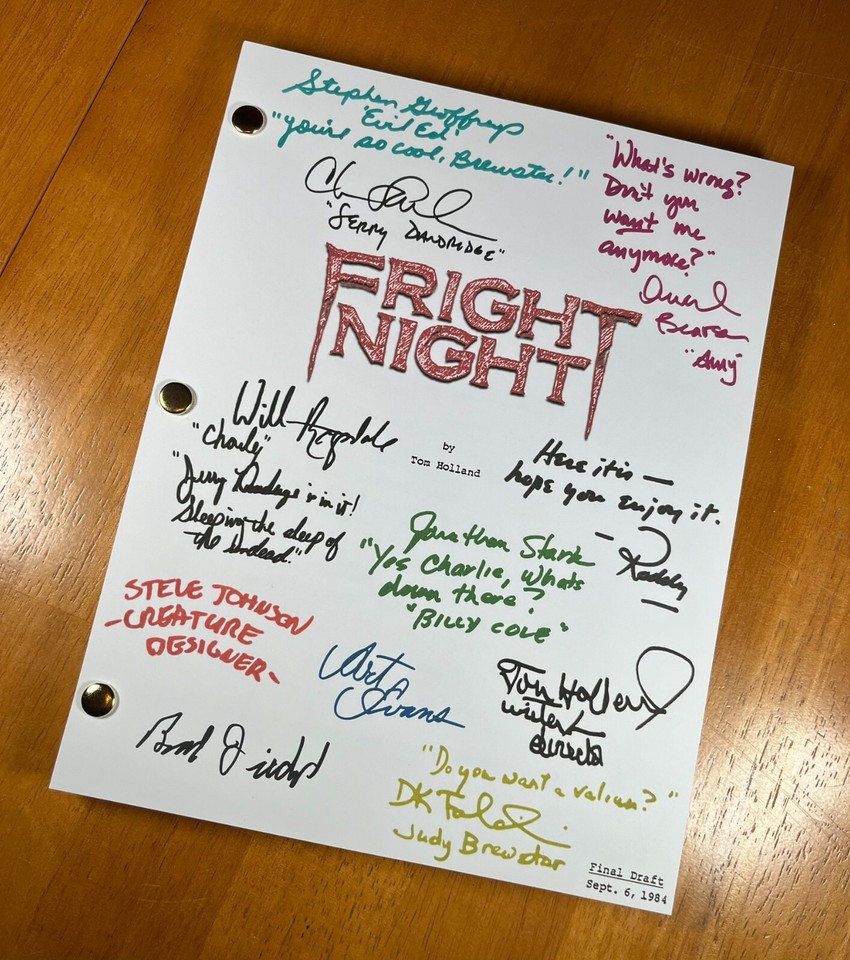 Stephen Geoffreys
'Evil Ed'
"You're so cool, Brewster!"
"What's wrong?
Don't you
want me
anymore?"
Bearse
"Amy"
"JERRY DANDRIDGE"
FRIGHT
NIGHT
by
Tom Holland
Will Ragsdale
"Charly"
"Jerry Dandridge is in it!
Sleeping the sleep of
the undead."
Here it is —
hope you enjoy it.
— Roddy —
Jonathan Stark
"Yes Charlie, whats
down there?"
"BILLY COLE"
STEVE JOHNSON
-CREATURE
DESIGNER-
Art
Evans
Tom Holland
writer +
director
"Do you want a valium?"
DK
Judy Brewster
Final Draft
Sept. 6, 1984